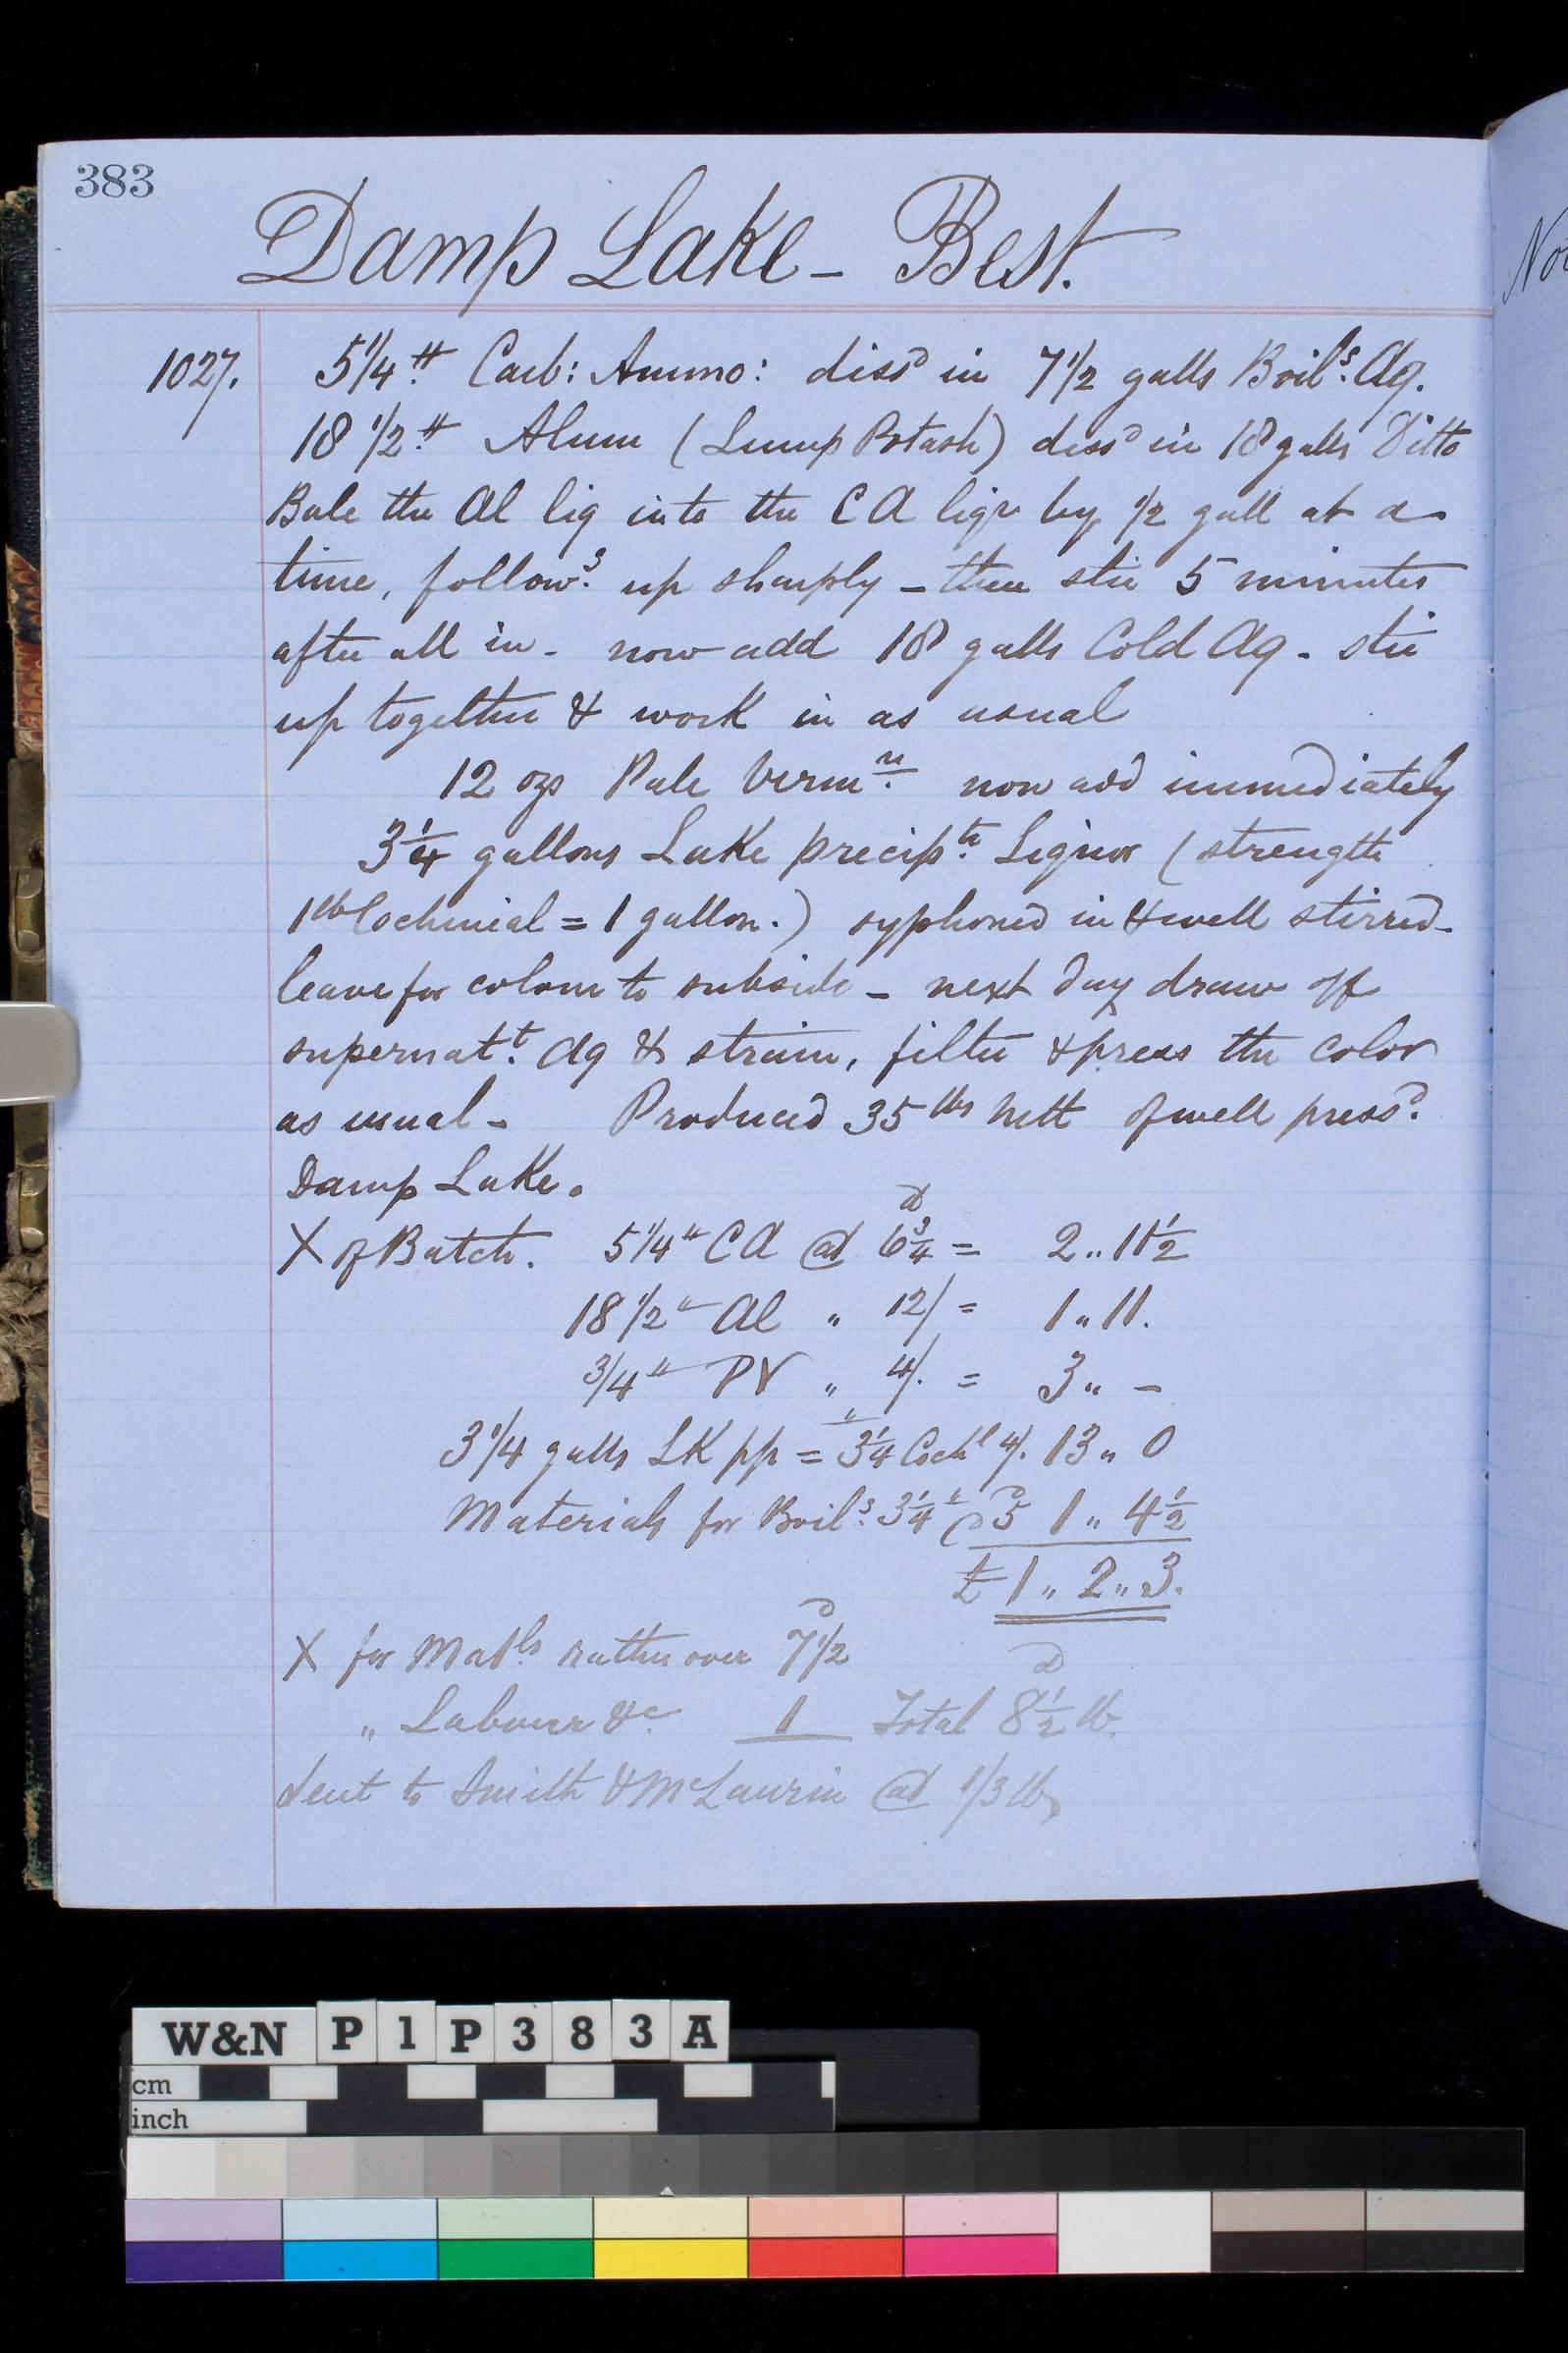 383
Damp Lake - Best.
No
1027. 5 1/4 lb Carb: Ammo: dissd in 7 1/2 galls Boilg. Aq.
18 1/2 lb Alum (Lump Potash) dissd in 18 galls Ditto
Bale the Al liq into the CA liqr by 1/2 gall at a
time, followg. up sharply - then stir 5 minutes
after all in - now add 18 galls Cold Aq - stir
up together & work in as usual
12 ozs Pale Vermn. now add immediately
3 1/4 gallons Lake precipte. Liquor (strength
1 lb Cochineal = 1 gallon.) syphoned in & well stirred -
leave for colour to subside - next day draw off
supernatt. Aq & strain, filter & press the color
as usual - Produced 35 lbs nett of well pressd.
Damp Lake.
X of Batch. 5 1/4 lb CA @ 6 3/4 d = 2 ,, 11 1/2
18 1/2 lb Al ,, 12/ = 1 ,, 11.
3/4 lb PV ,, 4/. = 3 ,, -
3 1/4 galls LK pp = 3 1/4 lb Cochl 4/. 13 ,, 0
Materials for Boilg. 3 1/4 lb @ 5d 1 ,, 4 1/2
£ 1 ,, 2 ,, 3.
X for Matls. rather over 7 1/2 d
,, Labour &c. 1 Total 8 1/2 d lb.
Sent to Smith & McLaurin @ 1/3 lb
W&N P1P383A
cm
inch